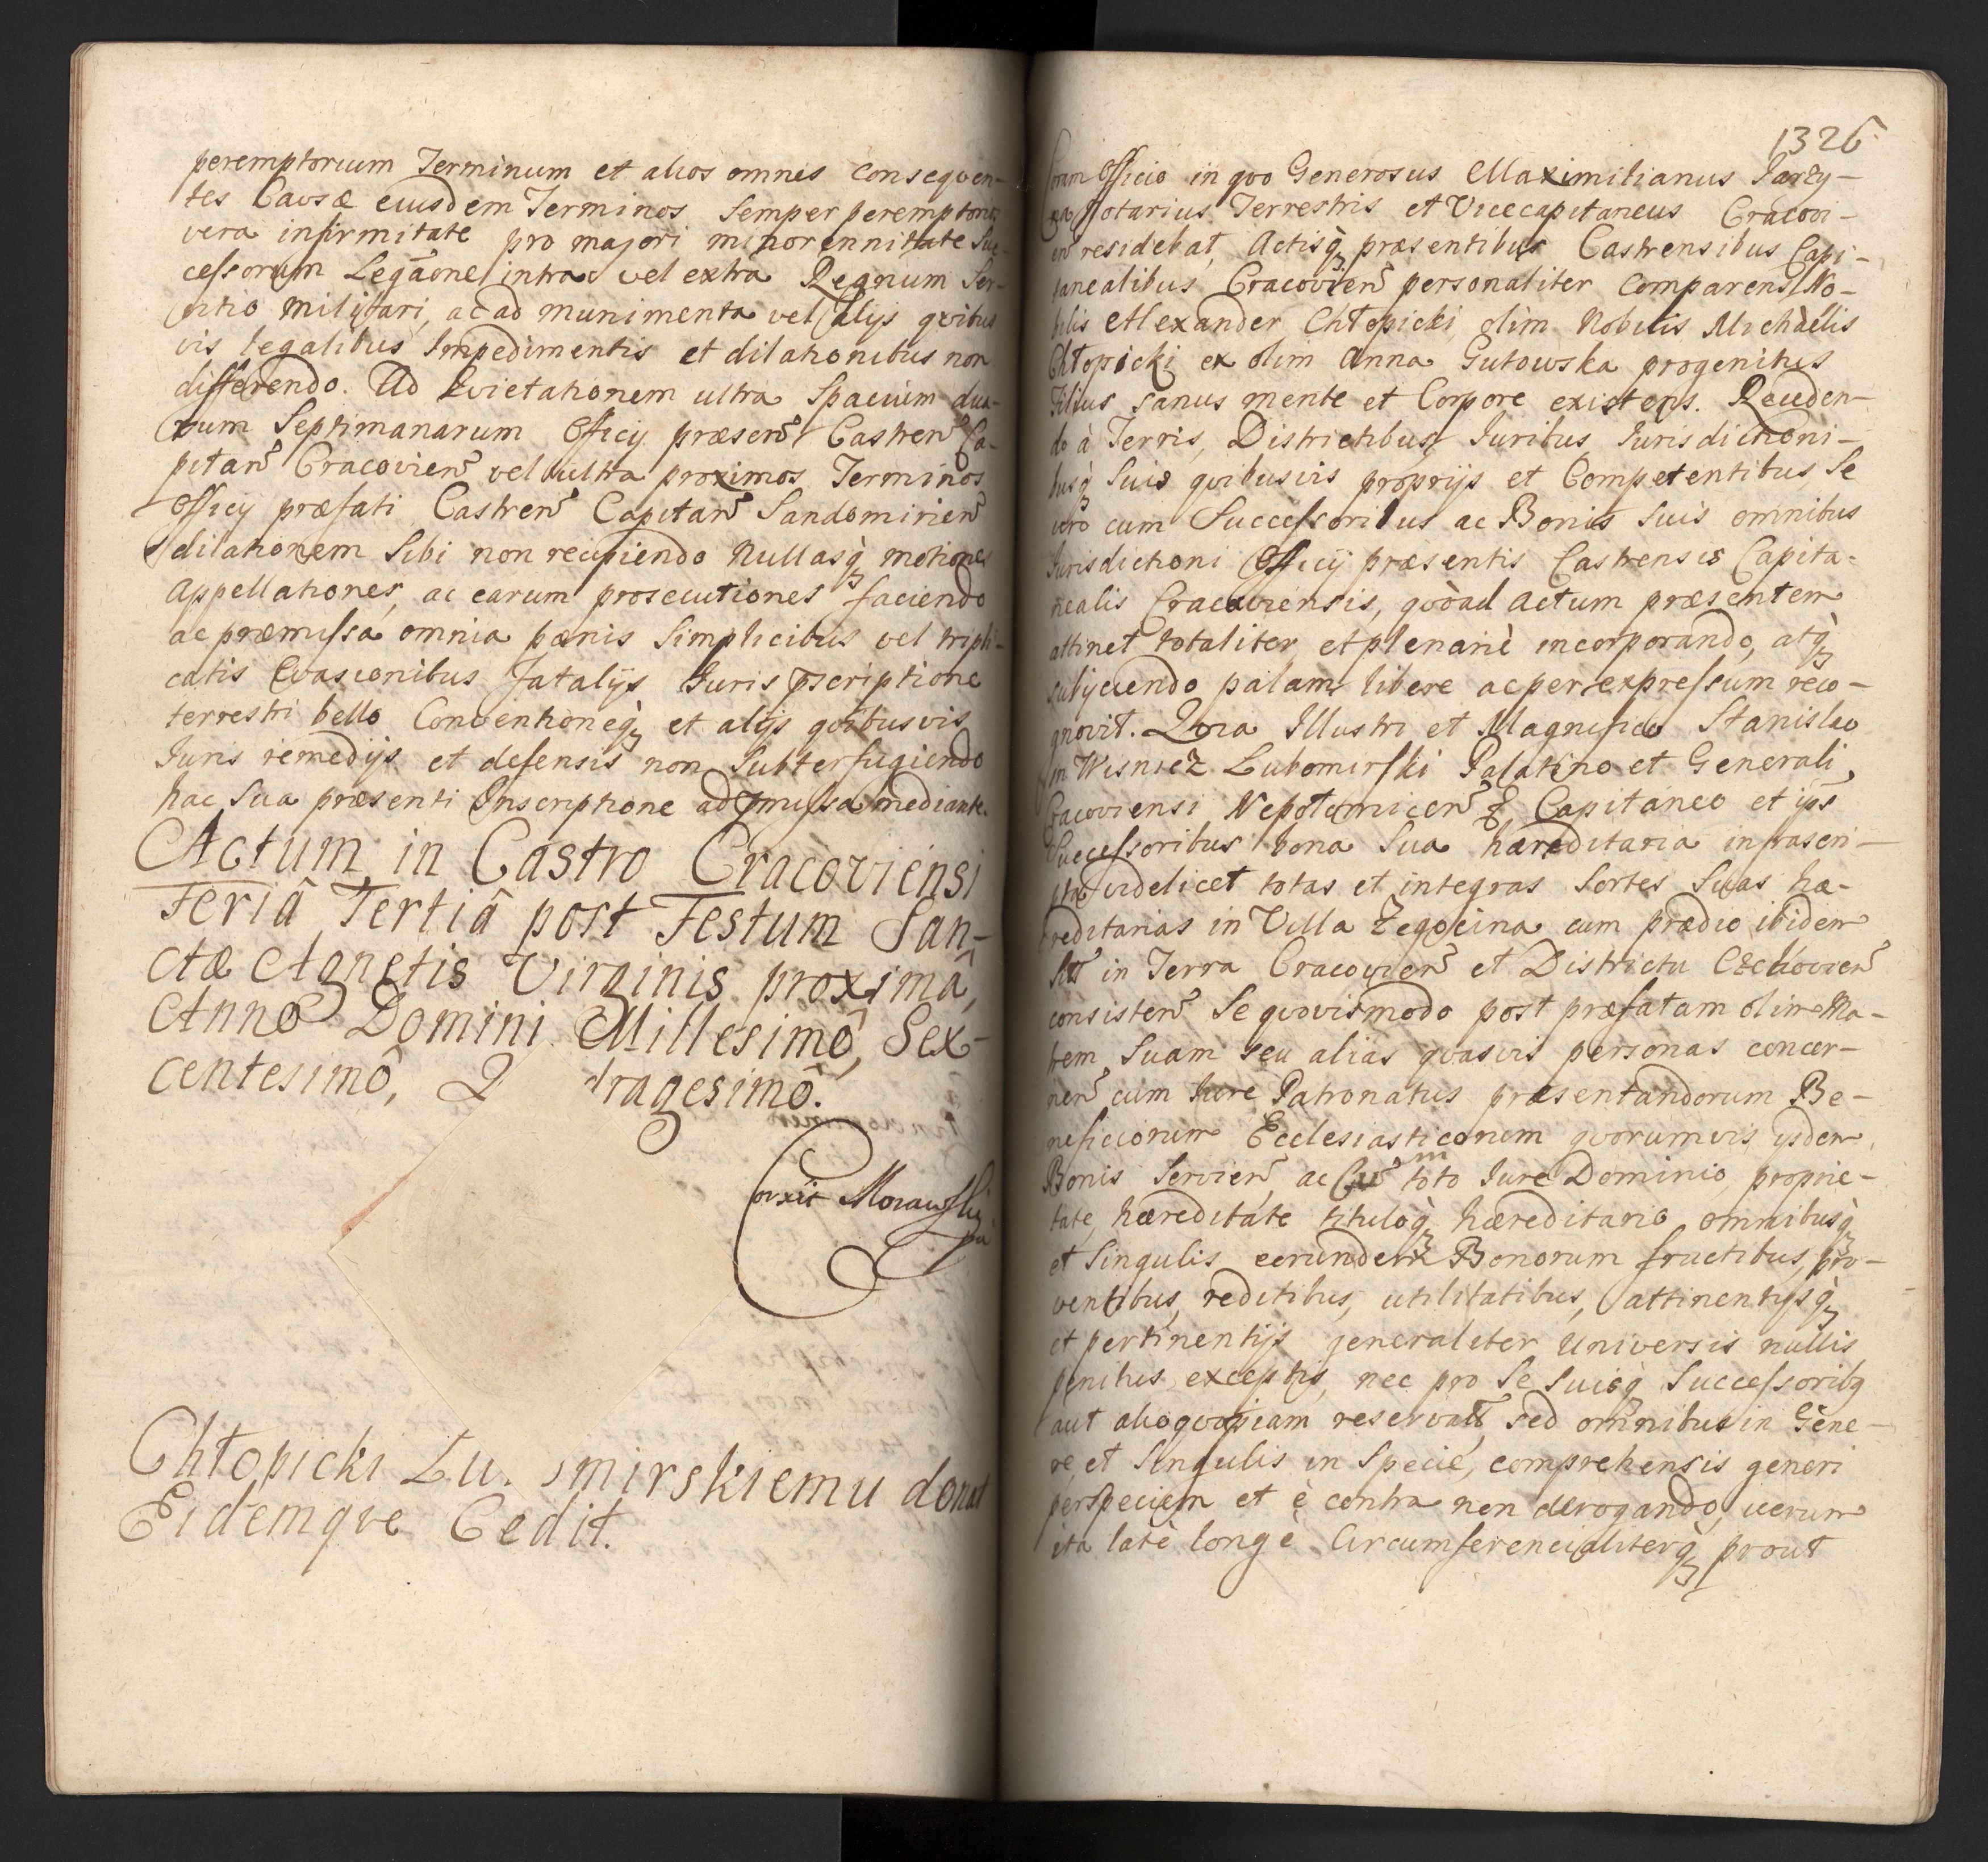 peremptorium Terminum et alios omnes conseqven-
tes Causæ eiusdem Terminos semper peremptorios
vera infirmitate pro majori minorennitate Suc-
cessorum Legãone intra vel extra Regnum Ser-
vitio militari, ac ad munimenta vel alijs qvibus
vis legalibus Impedimentis et dilationibus non
differendo. Ad Qvietationem ultra Spacium dua-
rum Septimanarum Officij præsen Castren Ca-
pitan Cracovien vel ultra proximos Terminos
Officij præfati Castren Capitan Sandomirien
dilationem Sibi non recipiendo Nullasq motiones
Appellationes, ac earum prosecutiones faciendo
ac præmissa omnia pænis Simplicibus vel tripli-
catis Evasionibus fatalijs Iuris pscriptione
terrestri bello Conventioneq et alijs qvibusvis
Iuris remedijs et defensis non Subterfugiendo
hac Sua præsenti Inscriptione ad pmissa mediante.
Actum in Castro Cracoviensi
Feriâ Tertiâ post Festum San-
ctæ Agnetis Virginis proximâ,
Anno Domini Millesimô, Sex-
centesimô, Q dragesimô.
Corxit Morawski
Chłopicki Lu. mirskiemu donat
Eidemqve Cedit.
1326
Coram Officio in qvo Generosus Maximilianus Iarzy-
na Notarius Terrestris et Vicecapitaneus Cracovi-
en residebat, Actisq præsentibus Castrensibus Capi-
tanealibus Cracovien personaliter Comparens No-
bilis Alexander Chłopicki olim Nobilis Michaelis
Chłopicki ex olim Anna Gutowska progenitus
Filius sanus mente et Corpore existens. Receden-
do à Terris, Districtibus Iuribus Iurisdictioni-
busq Suis qvibusvis proprijs et Competentibus, Se
vero cum Successoribus ac Bonis Suis omnibus
Iurisdictioni Officij præsentis Castrensis Capita-
nealis Cracoviensis, qvoad Actum præsentem
attinet totaliter et plenariè incorporando, atq
subijciendo palam libere ac per expressum reco-
gnovit. Qvia Illustri et Magnifico Stanislao
in Wisnicz Lubomirski Palatino et Generali
Cracoviensi Nepotomicen & Capitaneo et ips
Successoribus bona Sua hæreditaria infrascri-
pta videlicet totas et integras Sortes Suas hæ-
reditarias in Villa Zegocina cum prædio ibidem
in Terra Cracovien et Districtu Czchovien
consisten Se qvovismodo post præfatam olim Ma-
trem Suam seu alias qvasvis personas concer-
nen cum Iure Patronatus præsentandorum Be-
neficiorum Ecclesiasticorum qvorumvis ijsdem
Bonis Servien ac Cum toto Iure Dominio, proprie-
tate, hæreditate tituloq hæreditario omnibusq
et Singulis eorundem Bonorum fructibus, pro-
ventibus, reditibus, utilitatibus, attinentijsq
et pertinentijs generaliter Universis nullis
penitus exceptis, nec pro Se Suisq Successoribq
aut alio qvopiam reservatt, sed omnibus in Gene-
re, et Singulis in Specie, comprehensis generi
per speciem et è contra non derogando, verum
ita latè longè Circumferencialiterq prout